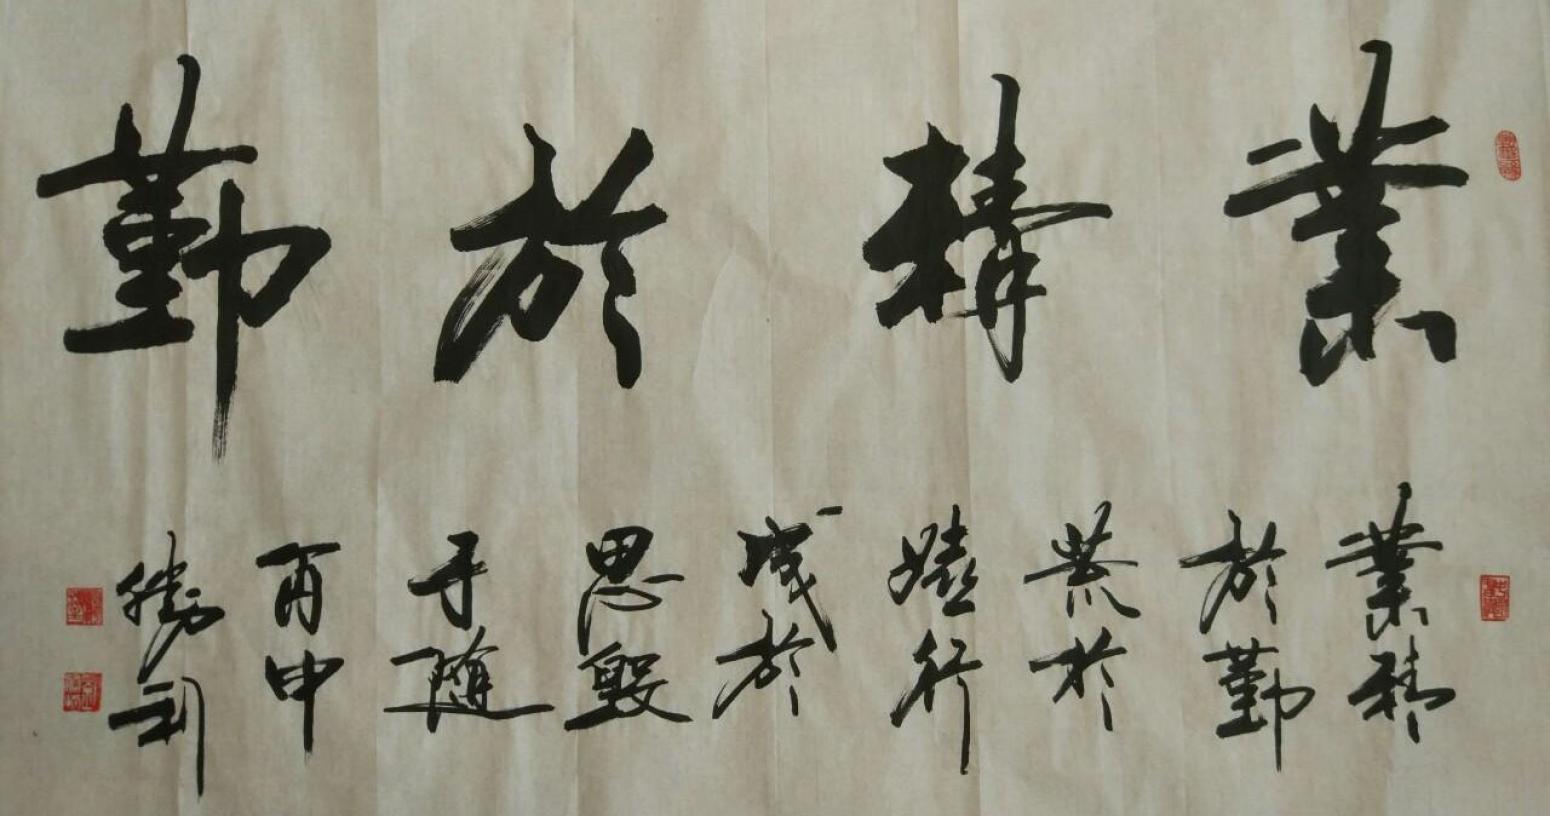 業精於勤
業精
於勤
荒於
嬉行
成於
思毀
于随
丙申
勝